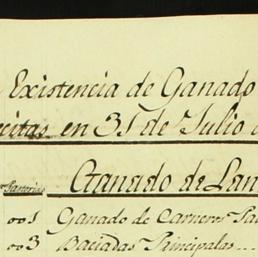 Existencia de Ganado
ecitas en 31 de Julio
Ganado de Lan
001 Ganado de Carneros Pa
003 Baciadas Principalas